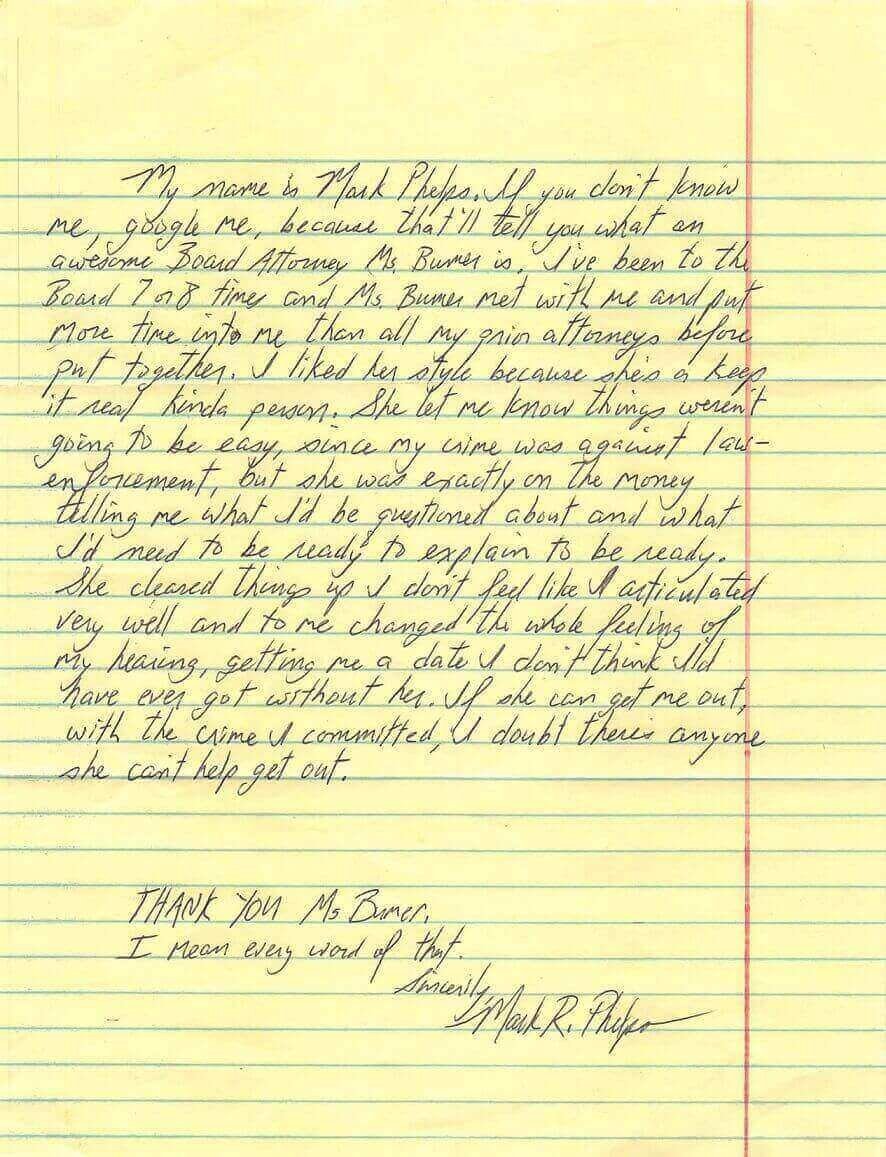 My name is Mark Phelps. If you don't know
me, google me, because that'll tell you what an
awesome Board Attorney Ms. Bumer is. I've been to the
Board 7 or 8 times and Ms. Bumer met with me and put
more time into me than all my prior attorneys before
put together. I liked her style because she's a keep
it real kinda person. She let me know things weren't
going to be easy, since my crime was against law-
enforcement, but she was exactly on the money
telling me what I'd be questioned about and what
I'd need to be ready to explain to be ready.
She cleared things up I don't feel like I articulated
very well and to me changed the whole feeling of
my hearing, getting me a date I don't think I'd
have ever got without her. If she can get me out,
with the crime I committed, I doubt there's anyone
she can't help get out.
THANK YOU Ms Bumer.
I mean every word of that.
Sincerily,
Mark R. Phelps